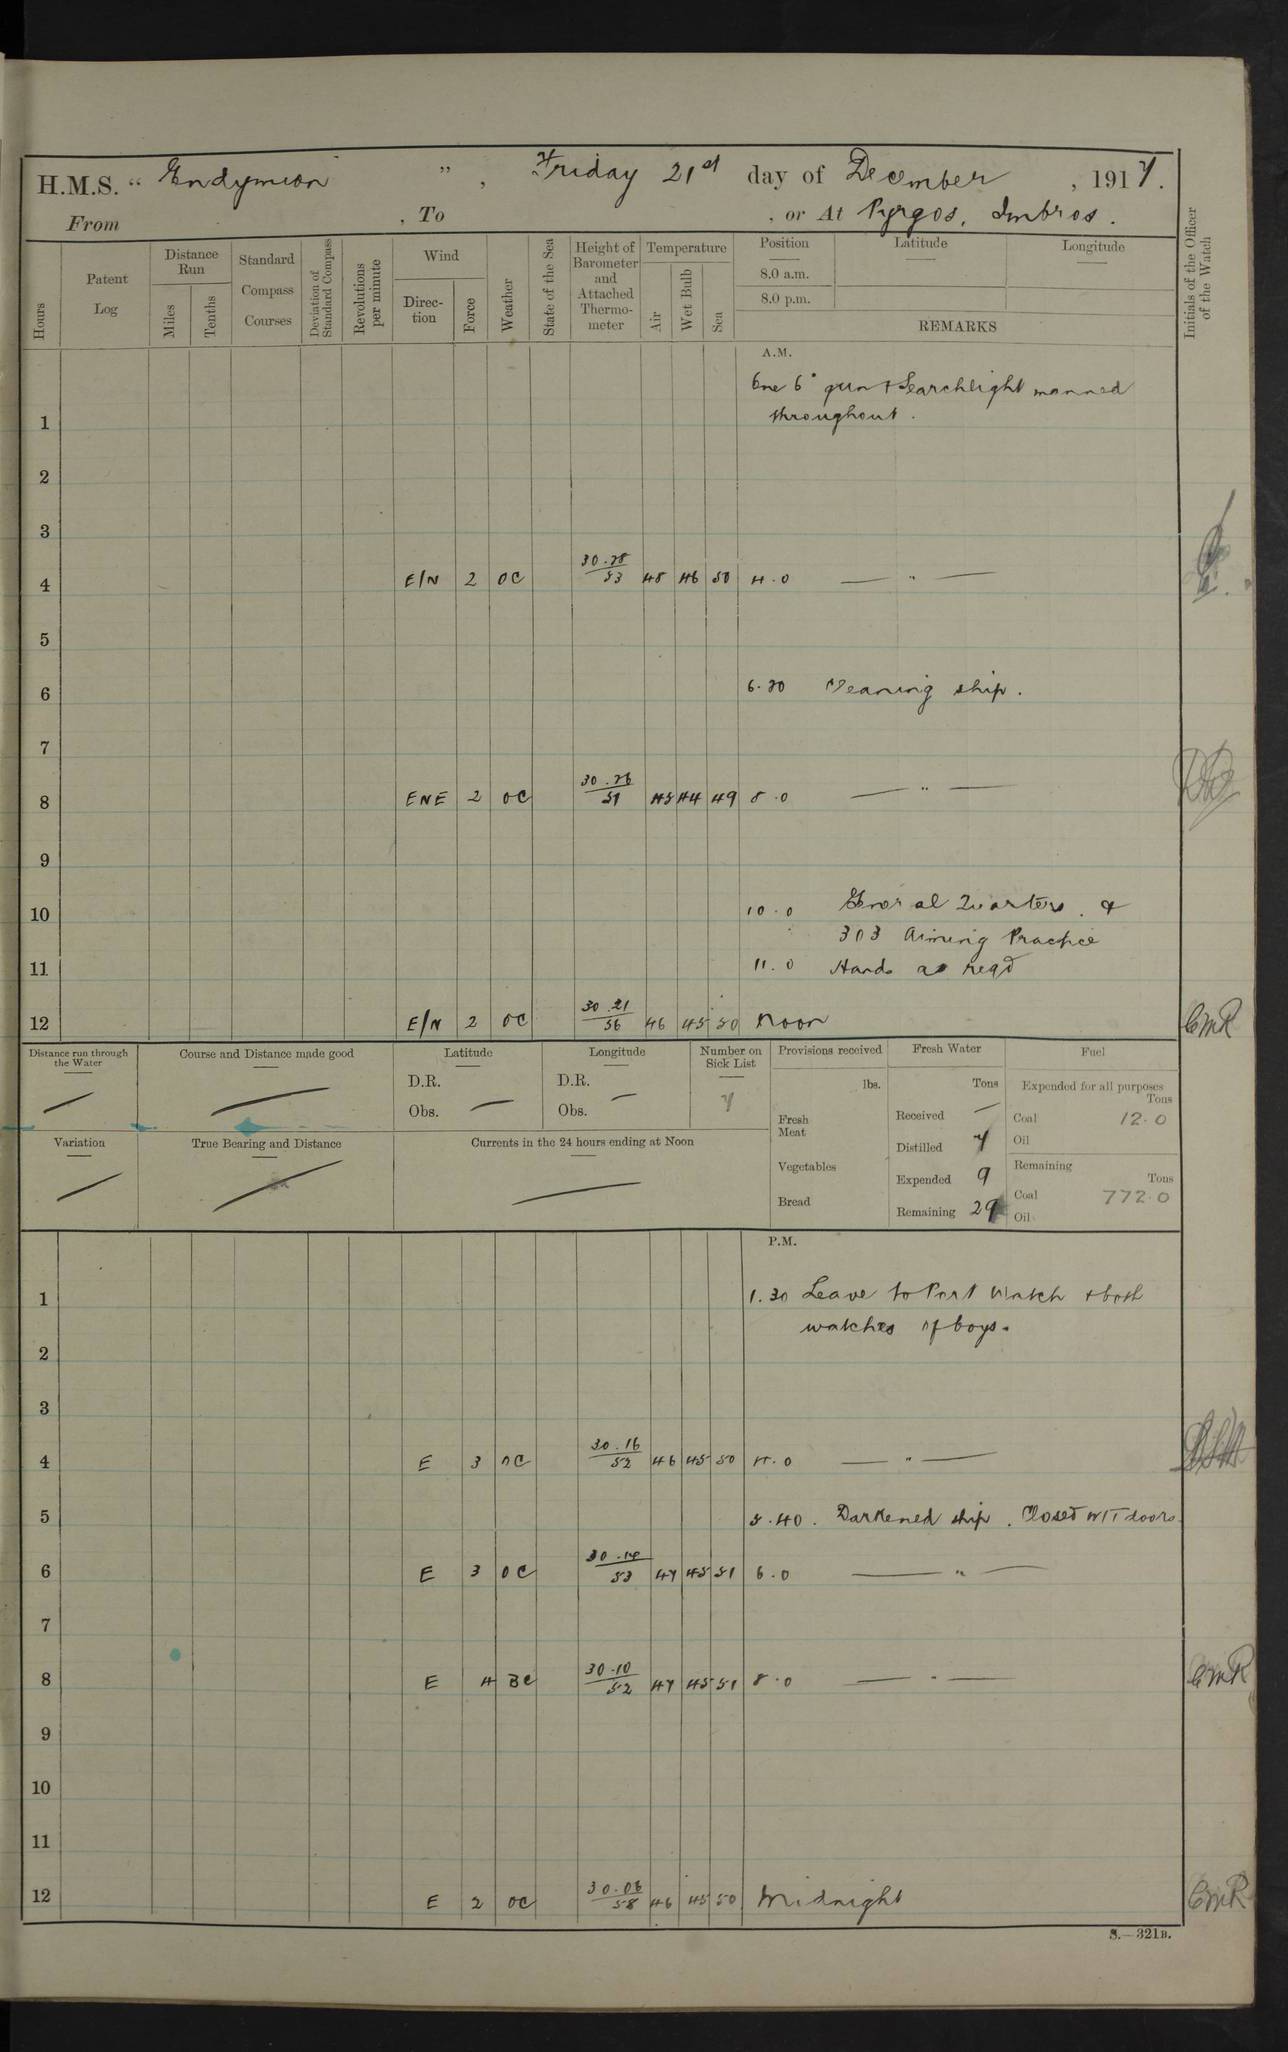 H.M.S. “ Endymion ” , Friday 21st day of December , 1917.
From , To , or At Pyrgos, Imbros.
Hours
Patent Log
Distance Run
Miles
Tenths
Standard Compass Courses
Deviation of Standard Compass
Revolutions per minute
Wind
Direc-tion
Force
Weather
State of the Sea
Height of Barometer and Attached Thermo-meter
Temperature
Air
Wet Bulb
Sea
Position
8.0 a.m.
8.0 p.m.
Latitude
Longitude
REMARKS
Initials of the Officer of the Watch
A.M.
One 6" gun + Searchlight manned
throughout.
1
2
3
4 E/N 2 OC 30.28 53 48 46 50 4.0 — " —
5
6 6.30 Cleaning ship.
7
8 ENE 2 OC 30.26 51 45 44 49 8.0 — " —
9
10 10.0 General Quarters. &
303 Aiming Practice
11 11.0 Hands as reqd
12 E/N 2 OC 30.21 56 46 45 50 Noon CMR
Distance run through the Water
Course and Distance made good
Latitude
D.R.
Obs. —
Longitude
D.R.
Obs. —
Number on Sick List
7
Provisions received
lbs.
Fresh Meat
Vegetables
Bread
Fresh Water
Tons
Received —
Distilled 7
Expended 9
Remaining 29
Fuel
Expended for all purposes
Tons
Coal 12.0
Oil
Remaining
Tons
Coal 772.0
Oil
Variation
True Bearing and Distance
Currents in the 24 hours ending at Noon
P.M.
1 1.30 Leave to Port Watch + both
watches of boys.
2
3
4 E 3 OC 30.16 52 46 45 50 4.0 — " —
5 5.40. Darkened ship. Closed W/T doors.
6 E 3 OC 30.14 53 47 45 51 6.0 — " —
7
8 E 4 BC 30.10 52 47 45 51 8.0 — " — CMR
9
10
11
12 E 2 OC 30.06 58 46 45 50 Midnight CMR
S.—321B.